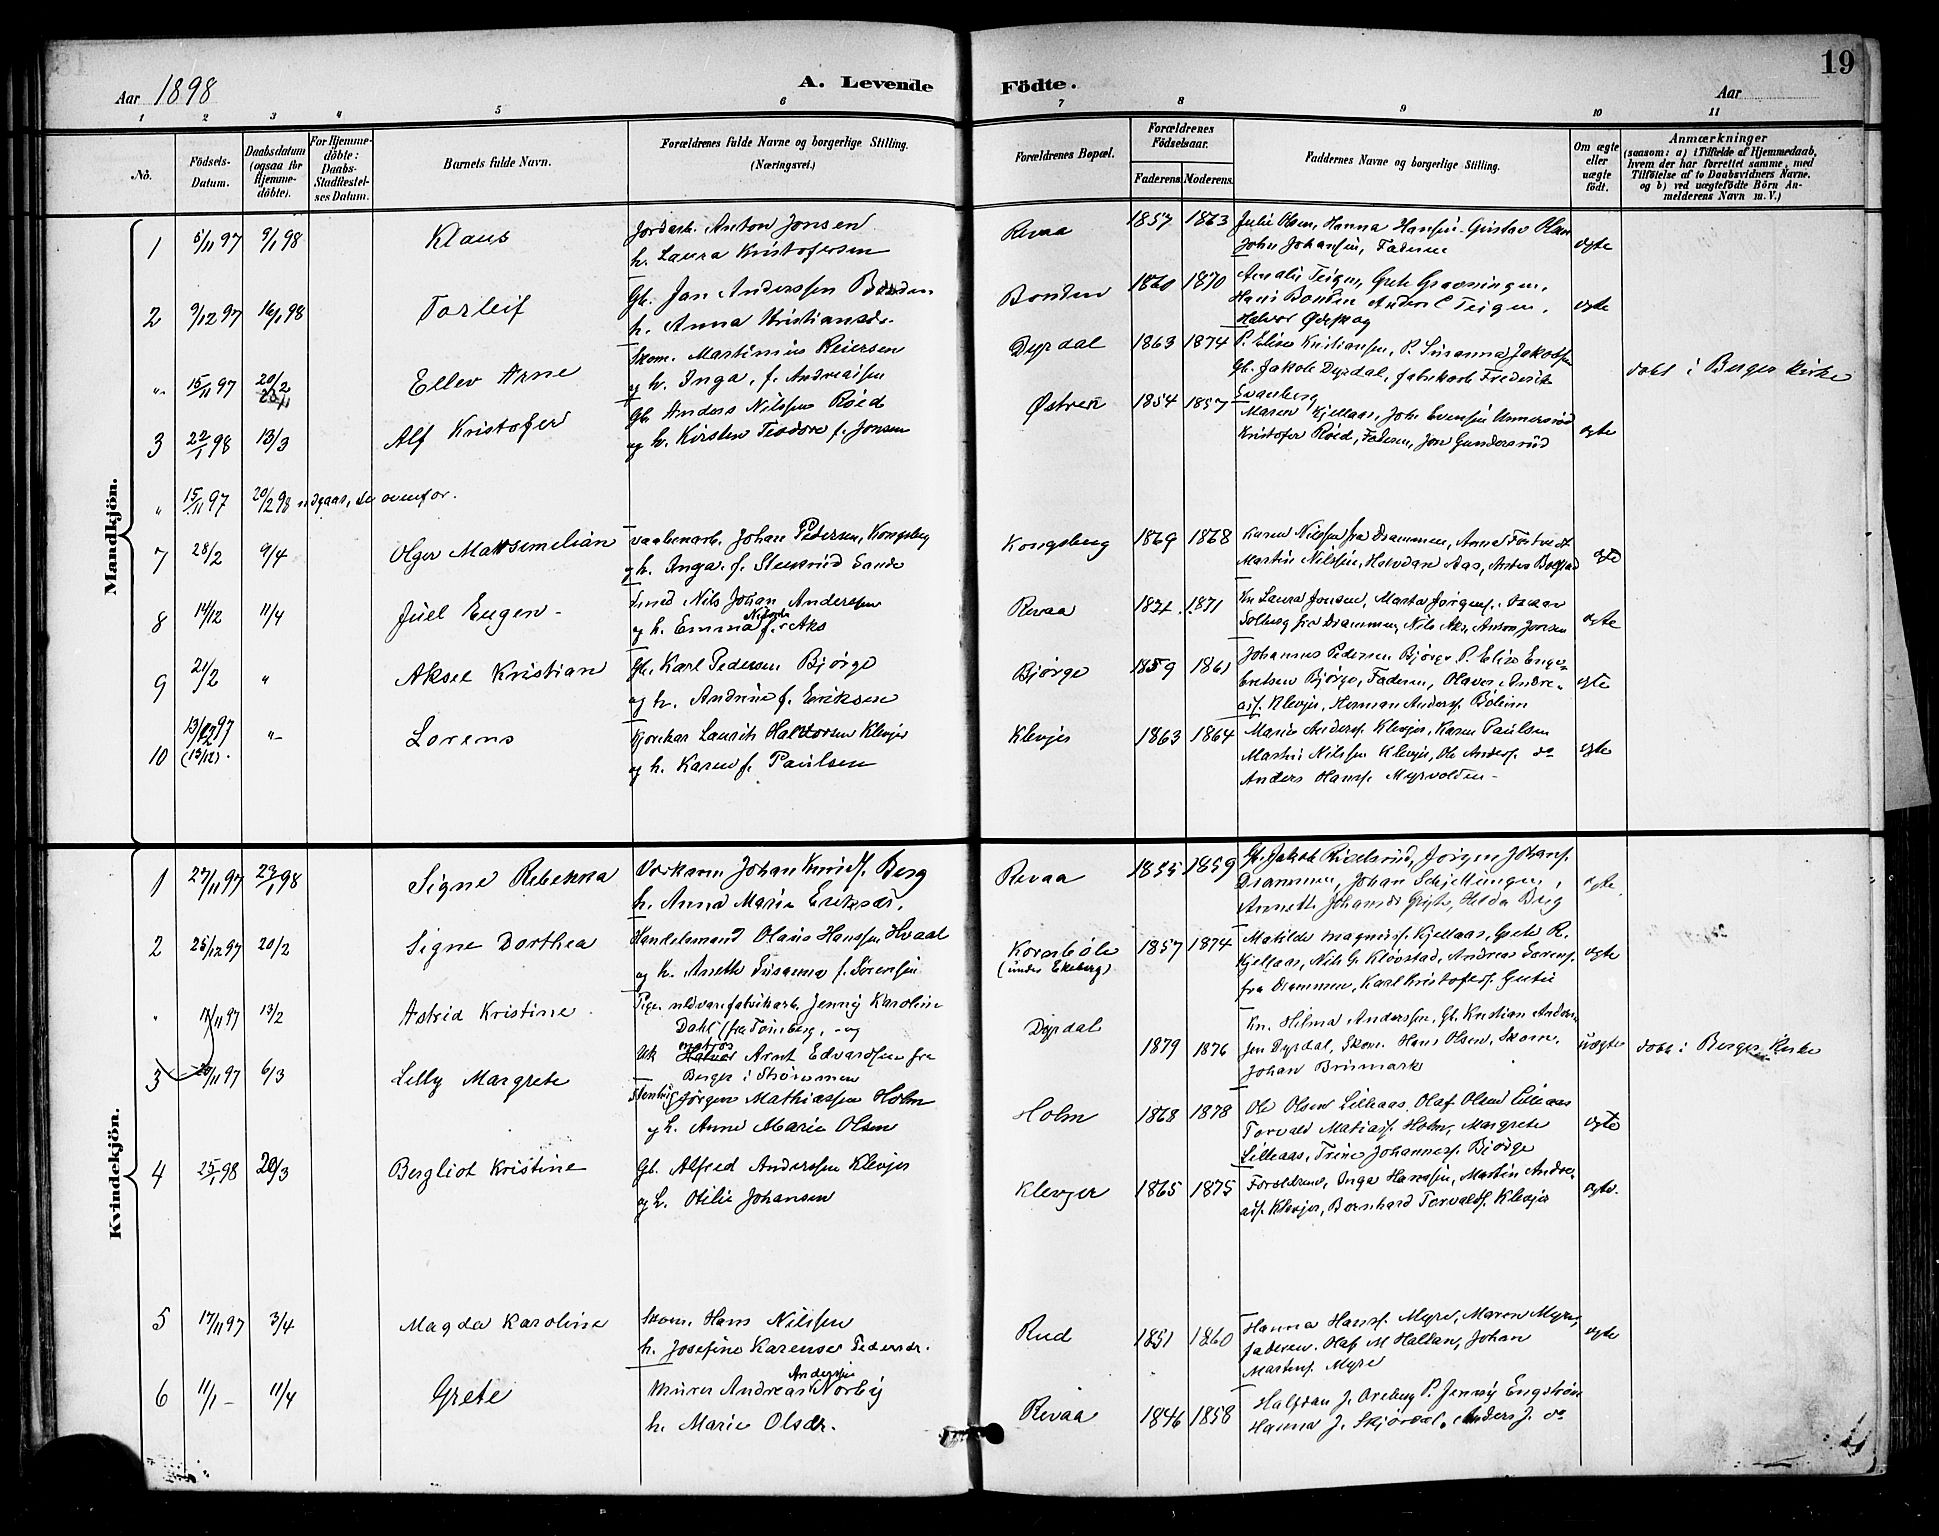 19
Aar 1898 A. Levende Födte. Aar
1 2 3 4 5 6 7 8 9 10 11
No.
Födsels-Datum.
Daabsdatum (ogsaa for Hjemme-döbte).
For Hjemme-döbte: Daabs-Stadfæstel-ses Datum.
Barnets fulde Navn.
Forældrenes fulde Navne og borgerlige Stilling. (Næringsvei.)
Forældrenes Bopæl.
Forældrenes Födselsaar.
Faderens. Moderens.
Faddernes Navne og borgerlige Stilling.
Om ægte eller uægte födt.
Anmærkninger
(saasom: a) i Tilfælde af Hjemmedaab,
hvem der har forrettet samme, med
Tilföielse af to Daabsvidners Navne,
og b) ved uægtefödte Börn An-
melderens Navn m. V.)
Mandkjön.
1 5/11 97 9/1 98 Klaus Jordarb. Anton Jonsen Revaa 1857 1863 Julie Olsen, Hanna Hansen, Gustav Olsen
h. Laura Kristofersen John Johansen, Faderen ægte
2 9/12 97 16/1 98 Torleif Gb. Jan Anderssen Bonden Bonden 1860 1870 Amalie Teigen, Grete Gravningen,
h. Anna Kristiansdr. Hans Bonden Anders C Teigen, ægte
Halvor Ødeskog
" 15/11 97 20/2 Ellev Arne Skom. Martinius Reiersen Dyrdal 1863 1874 P. Elise Kristiansen, P. Susanna Jakobsen
og h. Inga, f. Andreassen Gb. Jakob Dyrdal, fabrikarb. Frederik døbt i Berger Kirke
Svanberg
3 22/1 98 13/3 Alf Kristofer Gb. Anders Nilssen Røed Østre 1854 1857 Maren Kjellaas, Joh. Evensen Unnersrød
og h. Kirsten Teodora f. Jonsen Kristofer Røed, Faderen, Jon Gundersrud ægte
" 15/11 97 20/2 98 udgaar, se ovenfor.
7 28/2 9/4 Olger Maksimilian Vaabenarb. Johan Pedersen, Kongsberg Kongsberg 1869 1868 Karen Nilssen fra Drammen, Anna Fostvedt
og h. Inga f. Steensrud Sande Martin Nilssen, Halvdan Aas, Anders Bogstad ægte
8 14/12 11/4 Juel Eugen Smed Nils Johan Anderssen Revaa 1871 Kn Laura Jonsen, Marta Jørgens. Oskar
og h. Emma f. Aks Solberg fra Drammen, Nils Aks, Anton Jonsen ægte
9 21/2 " Aksel Kristian Gb. Karl Pedersen Bjørge Bjørge 1859 1861 Johannes Pedersen Bjørge P. Elise Enge-
og h. Andrine f. Eriksen bretsen Bjørge, Faderen, Olaves Andre- ægte
asf. Klevjer, Herman Anders. Bølum
10 13/12 97 (13/12). " Lorens Kjørekar Laurits Halvorsen Klevjer Klevjer 1863 1864 Marie Anders. Klevjer, Karen Paulsen
og h. Karen f. Paulsen Martin Nilssen Klevjer, Ole Anders. do ægte
Anders Hansf. Myrvolden
Kvindekjön.
1 27/11 97 23/1 98 Signe Rebekka Verkarm Johan Knuds. Berg Revaa 1855 1859 Gb. Jakob Riselsrud, Jørgen Johans.
h. Anna Marie Eriksdr. Drammen, Johan Schjetlingen, ægte
Annette Johansdr Hilda Berg
2 25/12 97 20/2 Signe Dorthea Handelsmand Olaus Hanssen Hvaal Kornbøle 1857 1874 Matilde Magnusf. Kjellaas, Grete R.
og h. Anette Susanna f. Sørensen (under Ekeberg) Kjellaas, Nils G. Kløvstad, Andreas Sørens. ægte
fra Drammen, Karl Kristofers. Gutu
" 11/11 97 13/2 Astrid Kristine Pige uldvarefabrikarb. Jenny Karoline Dyrdal 1879 1876 Kn. Hilma Anderssen, Gb. Kristian Anders-
Dahl (fra Tønsberg, og sen Dyrdal, Skom. Hans Olsen, Skom. uægte døbt i Berger Kirke
Uk matros Arnt Edvardsen fra Johan Brinmark
Berger i Strømmen
3 97 6/3 Lilly Margrete Jørgen Mathiassen Holm Holm 1868 1878 Ole Olsen Lilleaas, Olaf Olsen Lilleaas
og h. Anne Marie Olsen Torvald Matiasf. Holm, Margrete ægte
Lilleaas, Trine Johannesf. Bjørge
4 25/1 98 20/3 Bergliot Kristine Gb. Alfred Anderssen Klevjer Klevjer 1865 1875 Forældrene, Inga Hanssen, Martin Andre-
og h. Otilie Johansen asf. Klevjer, Bernhard Torvaldf. Klevjer ægte.
5 17/11 97 3/4 Magda Karoline Skom. Hans Nilssen Rud 1851 1860 Hanna Hansf. Myre, Maren Myre,
h. Josefine Karense Pedersdr. Faderen. Olaf M Hallan, Johan ægte
Martinf. Myre
6 11/1 11/4 Grete Murer Andreas Anderssen Norby Revaa 1846 1858 Halfdan J. Oreberg P. Jenny Engstrøm
h. Marie Olsdr. Hanna J. Skjørdal, Anders J. do